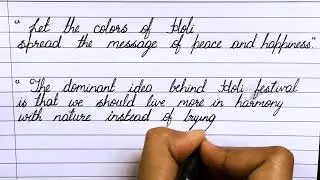 " Let the colors of Holi
spread the message of peace and happiness."
" The dominant idea behind Holi festival
is that we should live more in harmony
with nature instead of trying